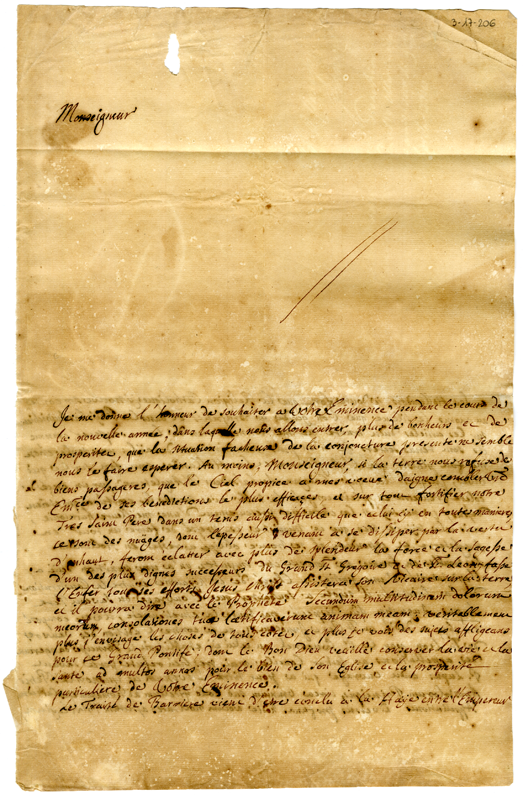 3-17-206
Monseigneur
Je me donne l'honneur de souhaiter a Votre Eminence pendant le cours de
la nouvelle année, dans laquelle nous allons entrer, plus de bonheurs et de
prosperité, que la situation facheuse de la conjoncture presente ne semble
nous le faire esperer. Au moins, Monseigneur, si la terre nous refuse de
biens passageres, que le Ciel propice a nos vœux daigne combler V.
Em.ce de ses benedictions le plus efficaces, et sur tout fortifier notre
Tres Saint Pere dans un tems aussi difficile que celui ci en toutes manieres
ce sont des nuages, dont l'epesseur venant a se dissiper par la vertu
d'enhaut, feront eclatter avec plus de splendeur la force et la sagesse
d'un des plus dignes successeurs du Grand St Gregoire et de St Leon, fasse
l'Enfer tous ses efforts Jesus Christ assistera son Vicaire sur la terre
et il pourra dire avec le Prophete: Secundum multitudinem dolorum
meorum consolationes tuæ lætificaverunt animam meam; veritablement
plus j'envisage les choses de tous coté, et plus je vois des sujets affligeans
pour ce Grand Pontife, dont le Bon Dieu veuille conserver la vie et la
santé ad multos annos pour le bien de son Eglise et la prosperité
particuliere de Votre Eminence.
Le Traité de Barriere vient d'etre conclu à la Haje entre l'Empereur